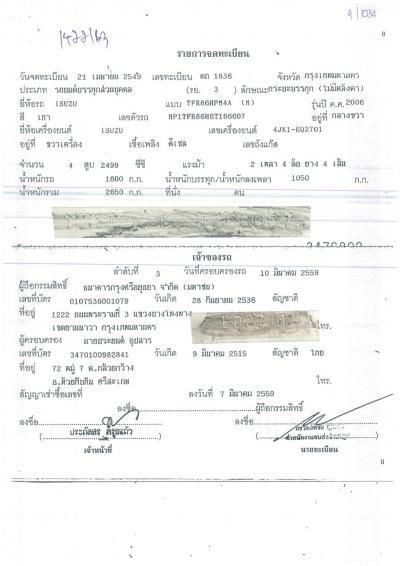 1488/63
รายการจดทะเบียน
วันจดทะเบียน 21 เมษายน 2549 เลขทะเบียน ตถ 1836 จังหวัด กรุงเทพมหานคร
ประเภท รถยนต์บรรทุกส่วนบุคคล (รย. 3 ) ลักษณะ กระบะบรรทุก (ไม่มีหลังคา)
ยี่ห้อรถ ISUZU แบบ TFR86HPM4A (M) รุ่นปี ค.ศ.2006
สี เทา เลขตัวรถ MP1TFR86H6T166607 อยู่ที่ กลางขวา
ยี่ห้อเครื่องยนต์ ISUZU เลขเครื่องยนต์ 4JK1-EQ2701
อยู่ที่ ขวาเครื่อง เชื้อเพลิง ดีเซล เลขถังแก๊ส
จำนวน 4 สูบ 2499 ซีซี แรงม้า 2 เพลา 4 ล้อ ยาง 4 เส้น
น้ำหนักรถ 1600 ก.ก. น้ำหนักบรรทุก/น้ำหนักลงเพลา 1050 ก.ก.
น้ำหนักรวม 2650 ก.ก. ที่นั่ง คน
เจ้าของรถ
ลำดับที่ 3 วันที่ครอบครองรถ 10 มีนาคม 2559
ผู้ถือกรรมสิทธิ์ ธนาคารกรุงศรีอยุธยา จำกัด (มหาชน)
เลขที่บัตร 0107536001079 วันเกิด 28 กันยายน 2536 สัญชาติ
ที่อยู่ 1222 ถนนพระรามที่ 3 แขวงบางโพงพาง
เขตยานนาวา กรุงเทพมหานคร โทร.
ผู้ครอบครอง นายประยงค์ อุปสาร
เลขที่บัตร 3470100982841 วันเกิด 9 มีนาคม 2515 สัญชาติ ไทย
ที่อยู่ 72 หมู่ 7 ต.กล้วยกว้าง
อ.ห้วยทับทัน ศรีสะเกษ โทร.
สัญญาเช่าซื้อเลขที่ ลงวันที่ 7 มีนาคม 2559
ลงชื่อ ผู้ถือกรรมสิทธิ์
ลงชื่อ ลงชื่อ
เจ้าหน้าที่ นายทะเบียน